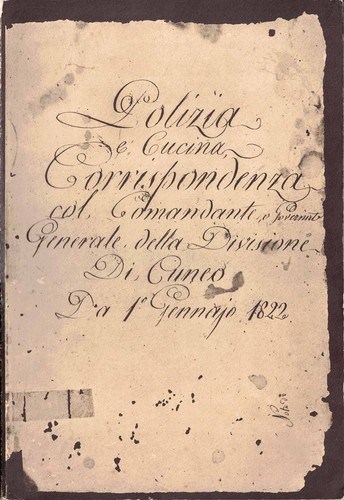 Polizia
e Cucina
Corrispondenza
col Comandante, o Governat.
Generale della Divisione
Di Cuneo
Da 1º Gennajo 1822